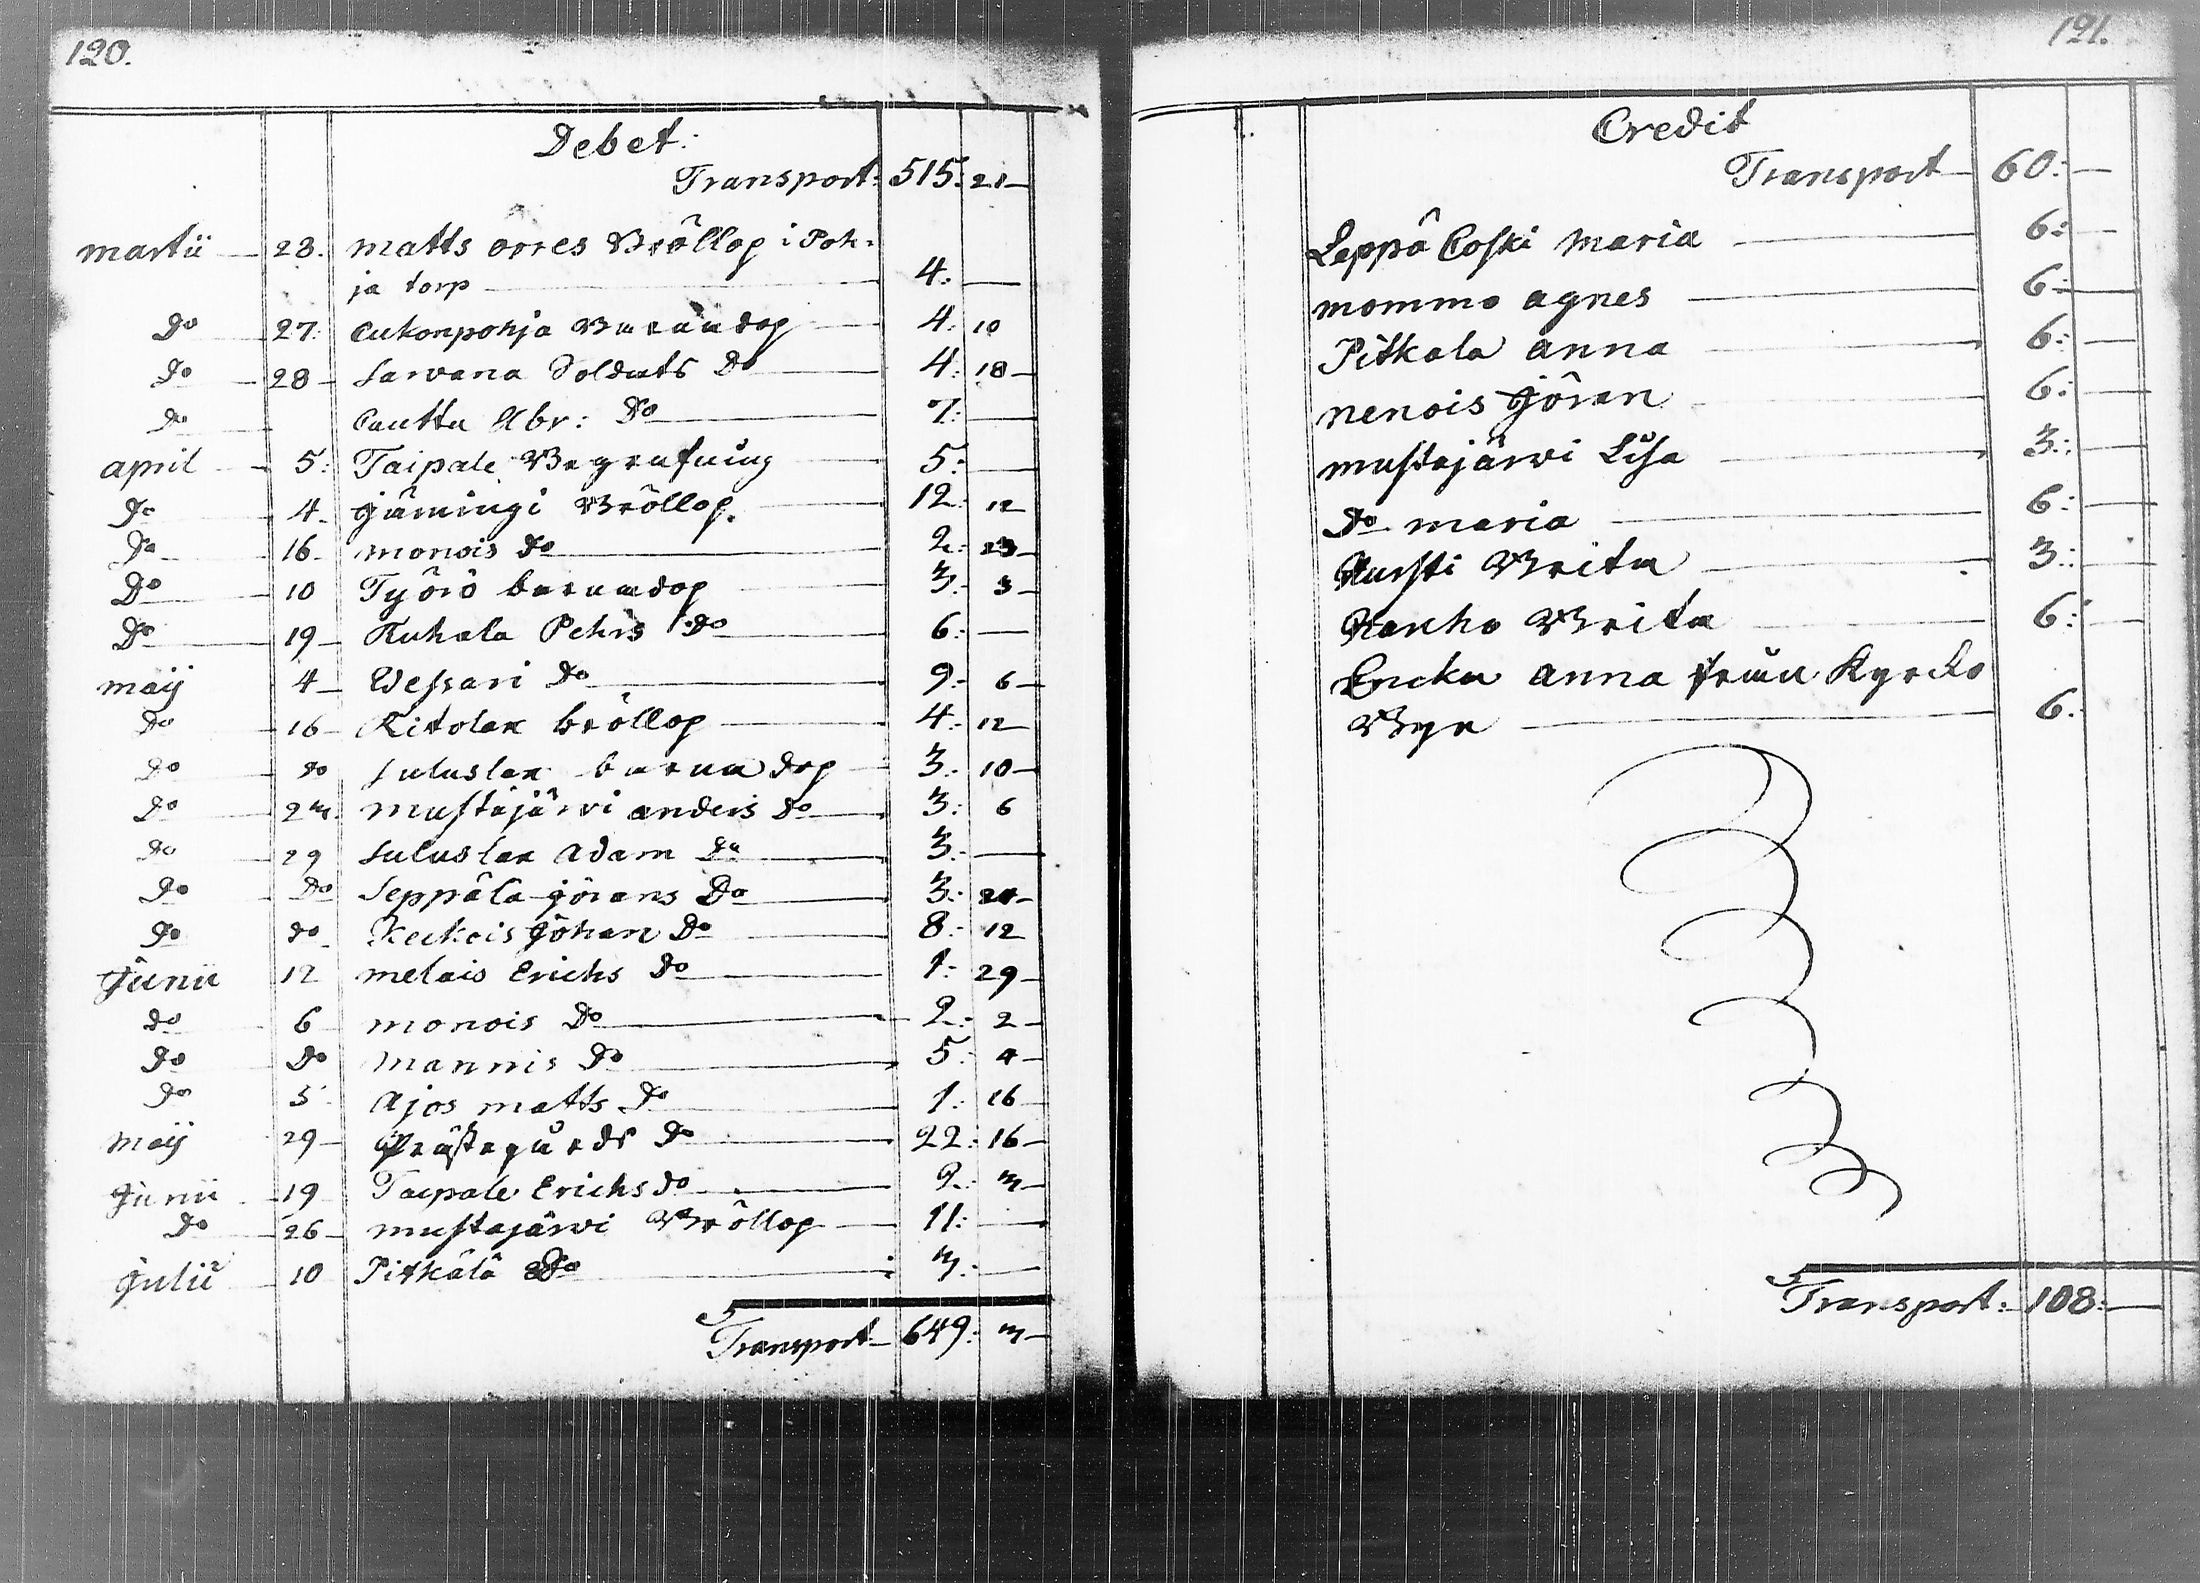 120.
Debet:
Transport: 515: 21
Martii 23. Matts Orres Bröllop i Poh-
ja torp 4: —
Do 27. Cukonpohja Barndop 4. 10
Do 28 Sarvana Soldats Do 4: 18
Do Cautta Abr: Do 7: —
April 5: Taipale Begrafning 5: —
Do 4. Jämingi Bröllop. 12: 12
Do 16 Monois Do 2: 23
Do 10 Työrö barndop 3: 3
Do 19 Kuhala Pehrs Do 6: —
Maij 4 Wessari Do 9: 6
Do 16 Ritolan bröllop 4: 12
Do Do Suluslax barndop 3: 10
Do Mustajärvi Anders Do 3: 6
Do 29 Suluslax Adam Do 3: —
Do Do Seppälä Görans Do 3:
Do Do Keikois Johan Do 8: 12
Junii 12 Melais Erichs Do 1: 29
Do 6 Monois Do 2: 2
Do Do Mannis Do 5: 4
Do 5 Ajos Matts Do 1: 16
Maij 29 Prästegårds Do 22: 16
Junii 19 Taipale Erichs Do 2: 3
Do 26 Mustajärvi Bröllop 11: —
Julii 10 Pitkälä Do 3: —
Transport 649: 3
121.
Credit
Transport 60: —
Leppä Coski Maria 6: —
Mommo Agnes 6: —
Pitkala Anna 6: —
Nenois Jöran 6: —
Mustajärvi Lisa 3: —
Do Maria 6: —
Brita 3: —
Brita 6: —
Anna från Kyrcko
Byn 6.
Transport: 108: —